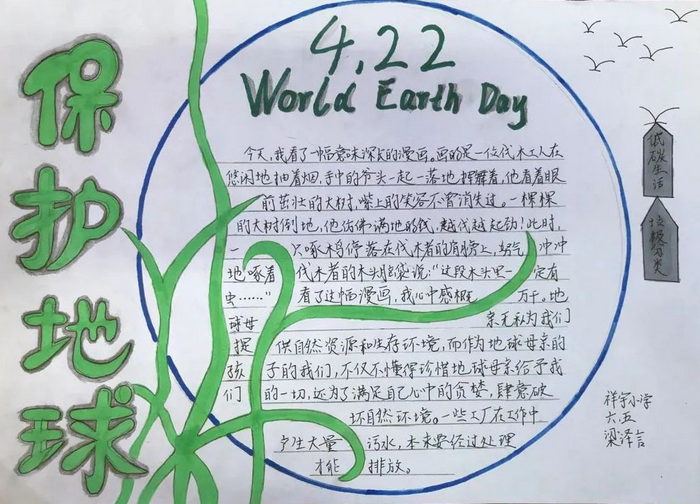 保护地球
4.22
World Earth Day
今天,我看了一幅意味深长的漫画。画的是一位伐木工人在
悠闲地抽着烟,手中的斧头一起一落地挥舞着,他看着眼
前茁壮的大树,嘴上的笑容不曾消失过。一棵棵
的大树倒地,他仿佛满地的钱,越伐越起劲!此时,
一只啄木鸟停落在伐木者的肩膀上,怒气冲冲
地啄着伐木者的木头脑袋说:“这段木头里一定有
虫……”看了这幅漫画,我心中感概万千。地
球母亲无私为我们
提供自然资源和生存环境,而作为地球母亲的
孩子的我们,不仅不懂得珍惜地球母亲给予我
们的一切,还为了满足自己心中的贪婪,肆意破
坏自然环境。一些工厂在工作中
产生大量污水,本来要经过处理
才能排放。
低碳生活
垃圾分类
祥宇小学
六.五
梁泽言